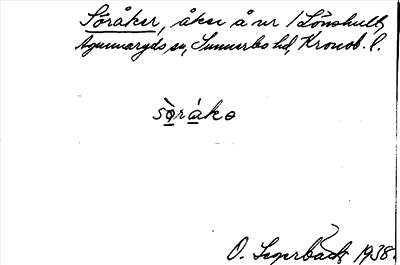 Söråker, åker å nr 1 Lönshult,
Agunnaryds sn, Sunnerbo hd, Kronob. l.
sò̱rá̱ka
O. Segerbäck 1938.